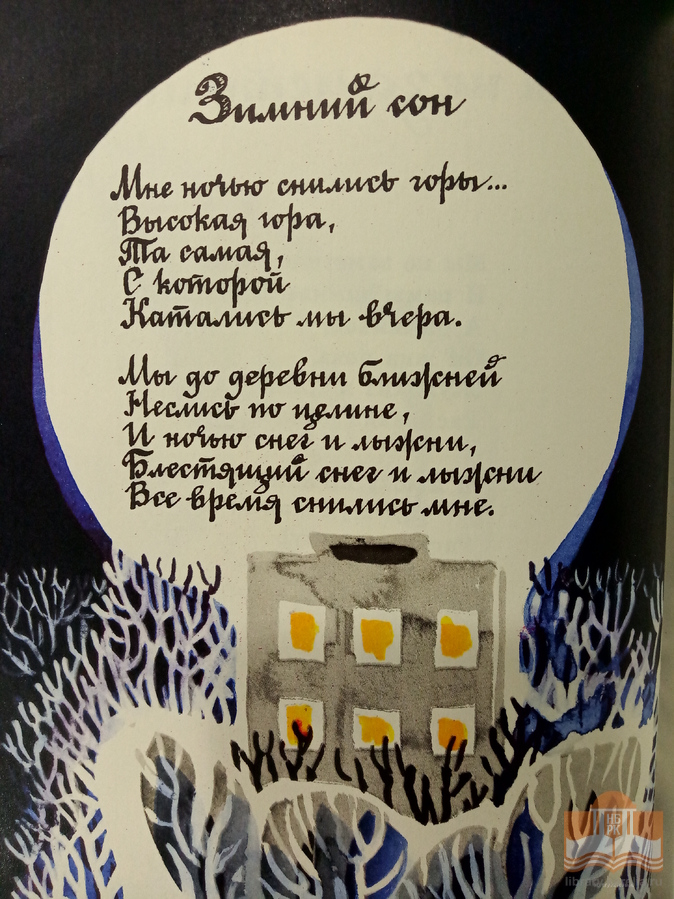 Зимний сон
Мне ночью снились горы...
Высокая гора,
Та самая,
С которой
Катались мы вчера.
Мы до деревни ближней
Неслись по целине,
И ночью снег и лыжни,
Блестящий снег и лыжни
Все время снились мне.
НБ
РК